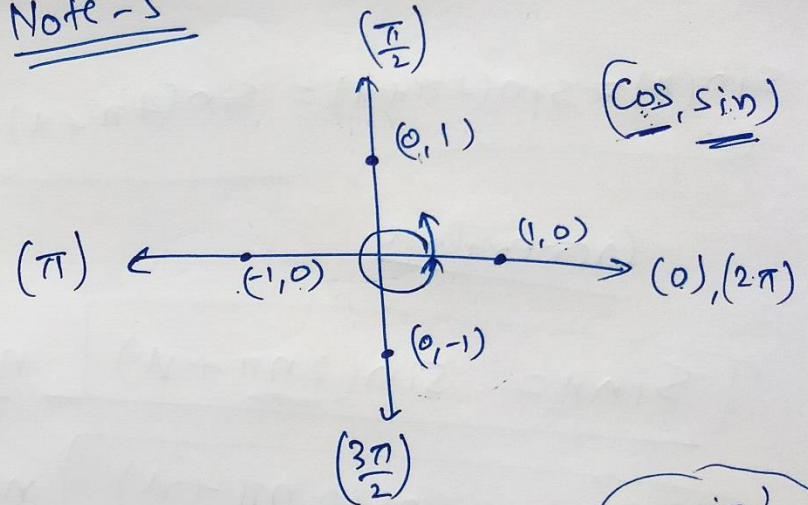 Note-5
(π/2)
(Cos, sin)
(0, 1)
(π)
(-1, 0)
(1, 0)
(0), (2π)
(0, -1)
(3π/2)